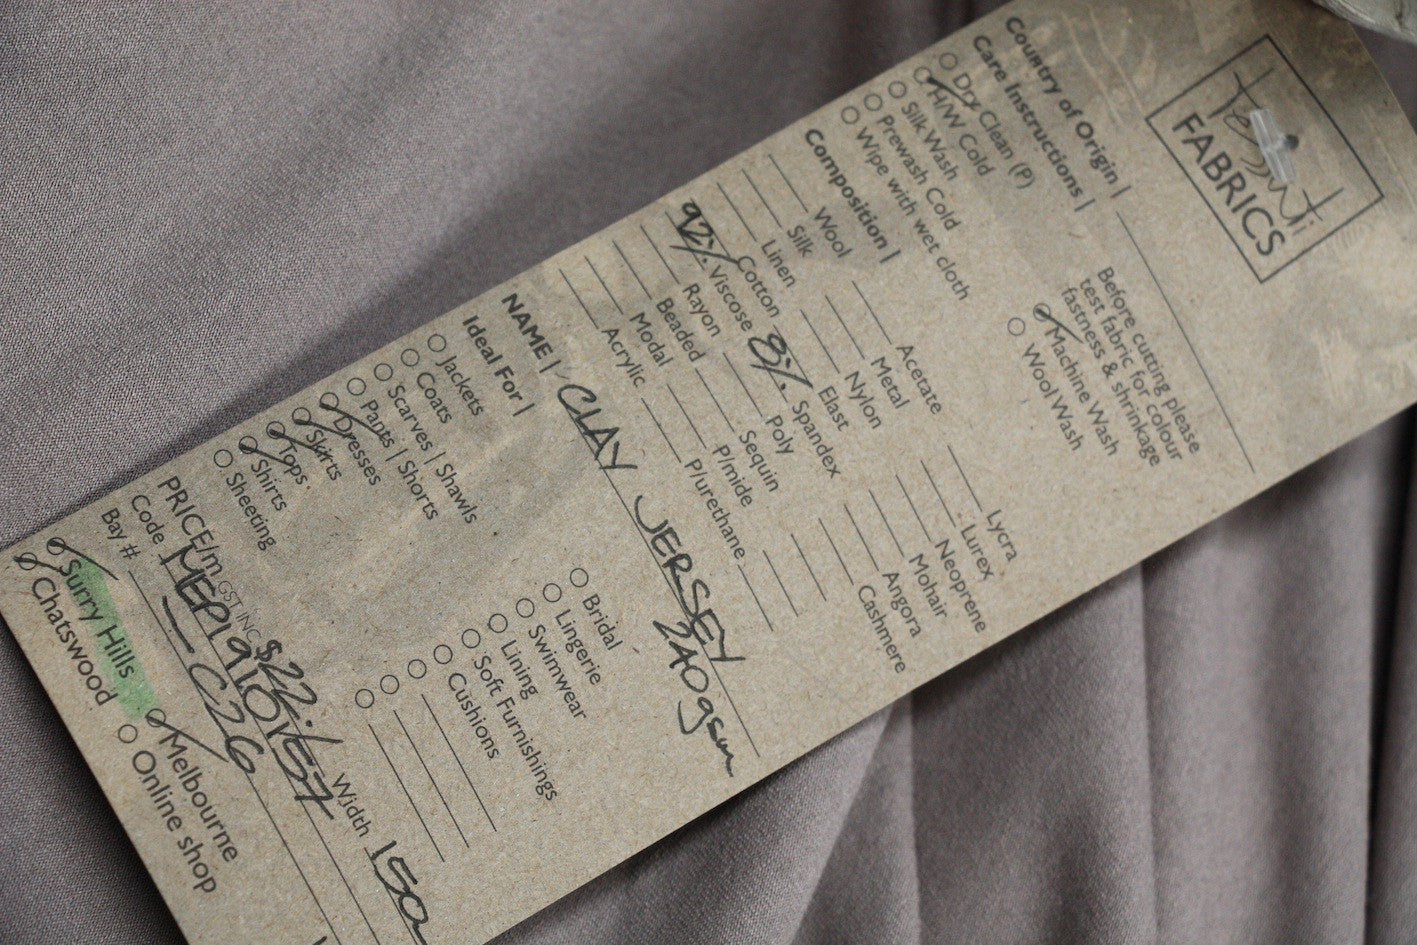 Tessuti
FABRICS
Country of Origin |
Care Instructions |
Dry Clean (P)
H/W Cold
Silk Wash
Prewash Cold
Wipe with wet cloth
Before cutting please
test fabric for colour
fastness & shrinkage
Machine Wash
Wool Wash
Composition |
Wool
Silk
Linen
Cotton
92% Viscose
Rayon
Beaded
Modal
Acrylic
Acetate
Metal
Nylon
Elast
8% Spandex
Poly
Sequin
P/mide
P/urethane
Lycra
Lurex
Neoprene
Mohair
Angora
Cashmere
NAME | CLAY JERSEY
240gsm
Ideal For |
Jackets
Coats
Scarves | Shawls
Pants | Shorts
Dresses
Skirts
Tops
Shirts
Sheeting
Bridal
Lingerie
Swimwear
Lining
Soft Furnishings
Cushions
PRICE/m GST INC $22.- Width 150
Code
Bay # C26
Surry Hills
Chatswood
Melbourne
Online shop